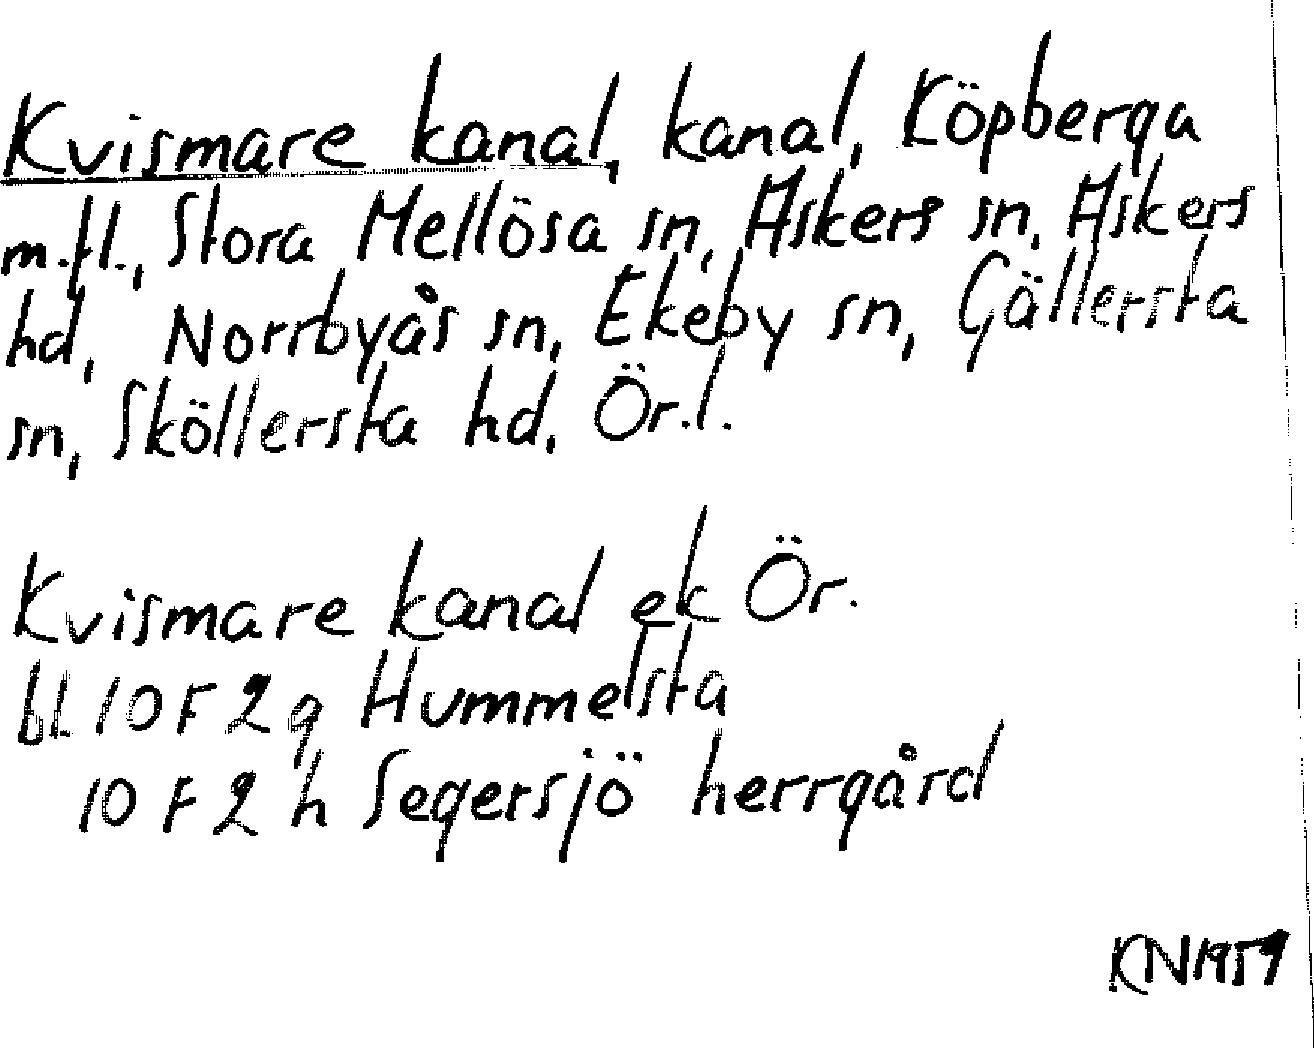 Kvismare kanal, kanal, Köpberga
m.fl., Stora Mellösa sn, Askers sn, Askers
hd, Norrbyås sn, Ekeby sn, Gällersta
sn, Sköllersta hd, Ör.l.
Kvismare kanal ek Ör.
bl. 10 F 2 g Hummelsta
10 F 2 h Segersjö herrgård
KN 1959